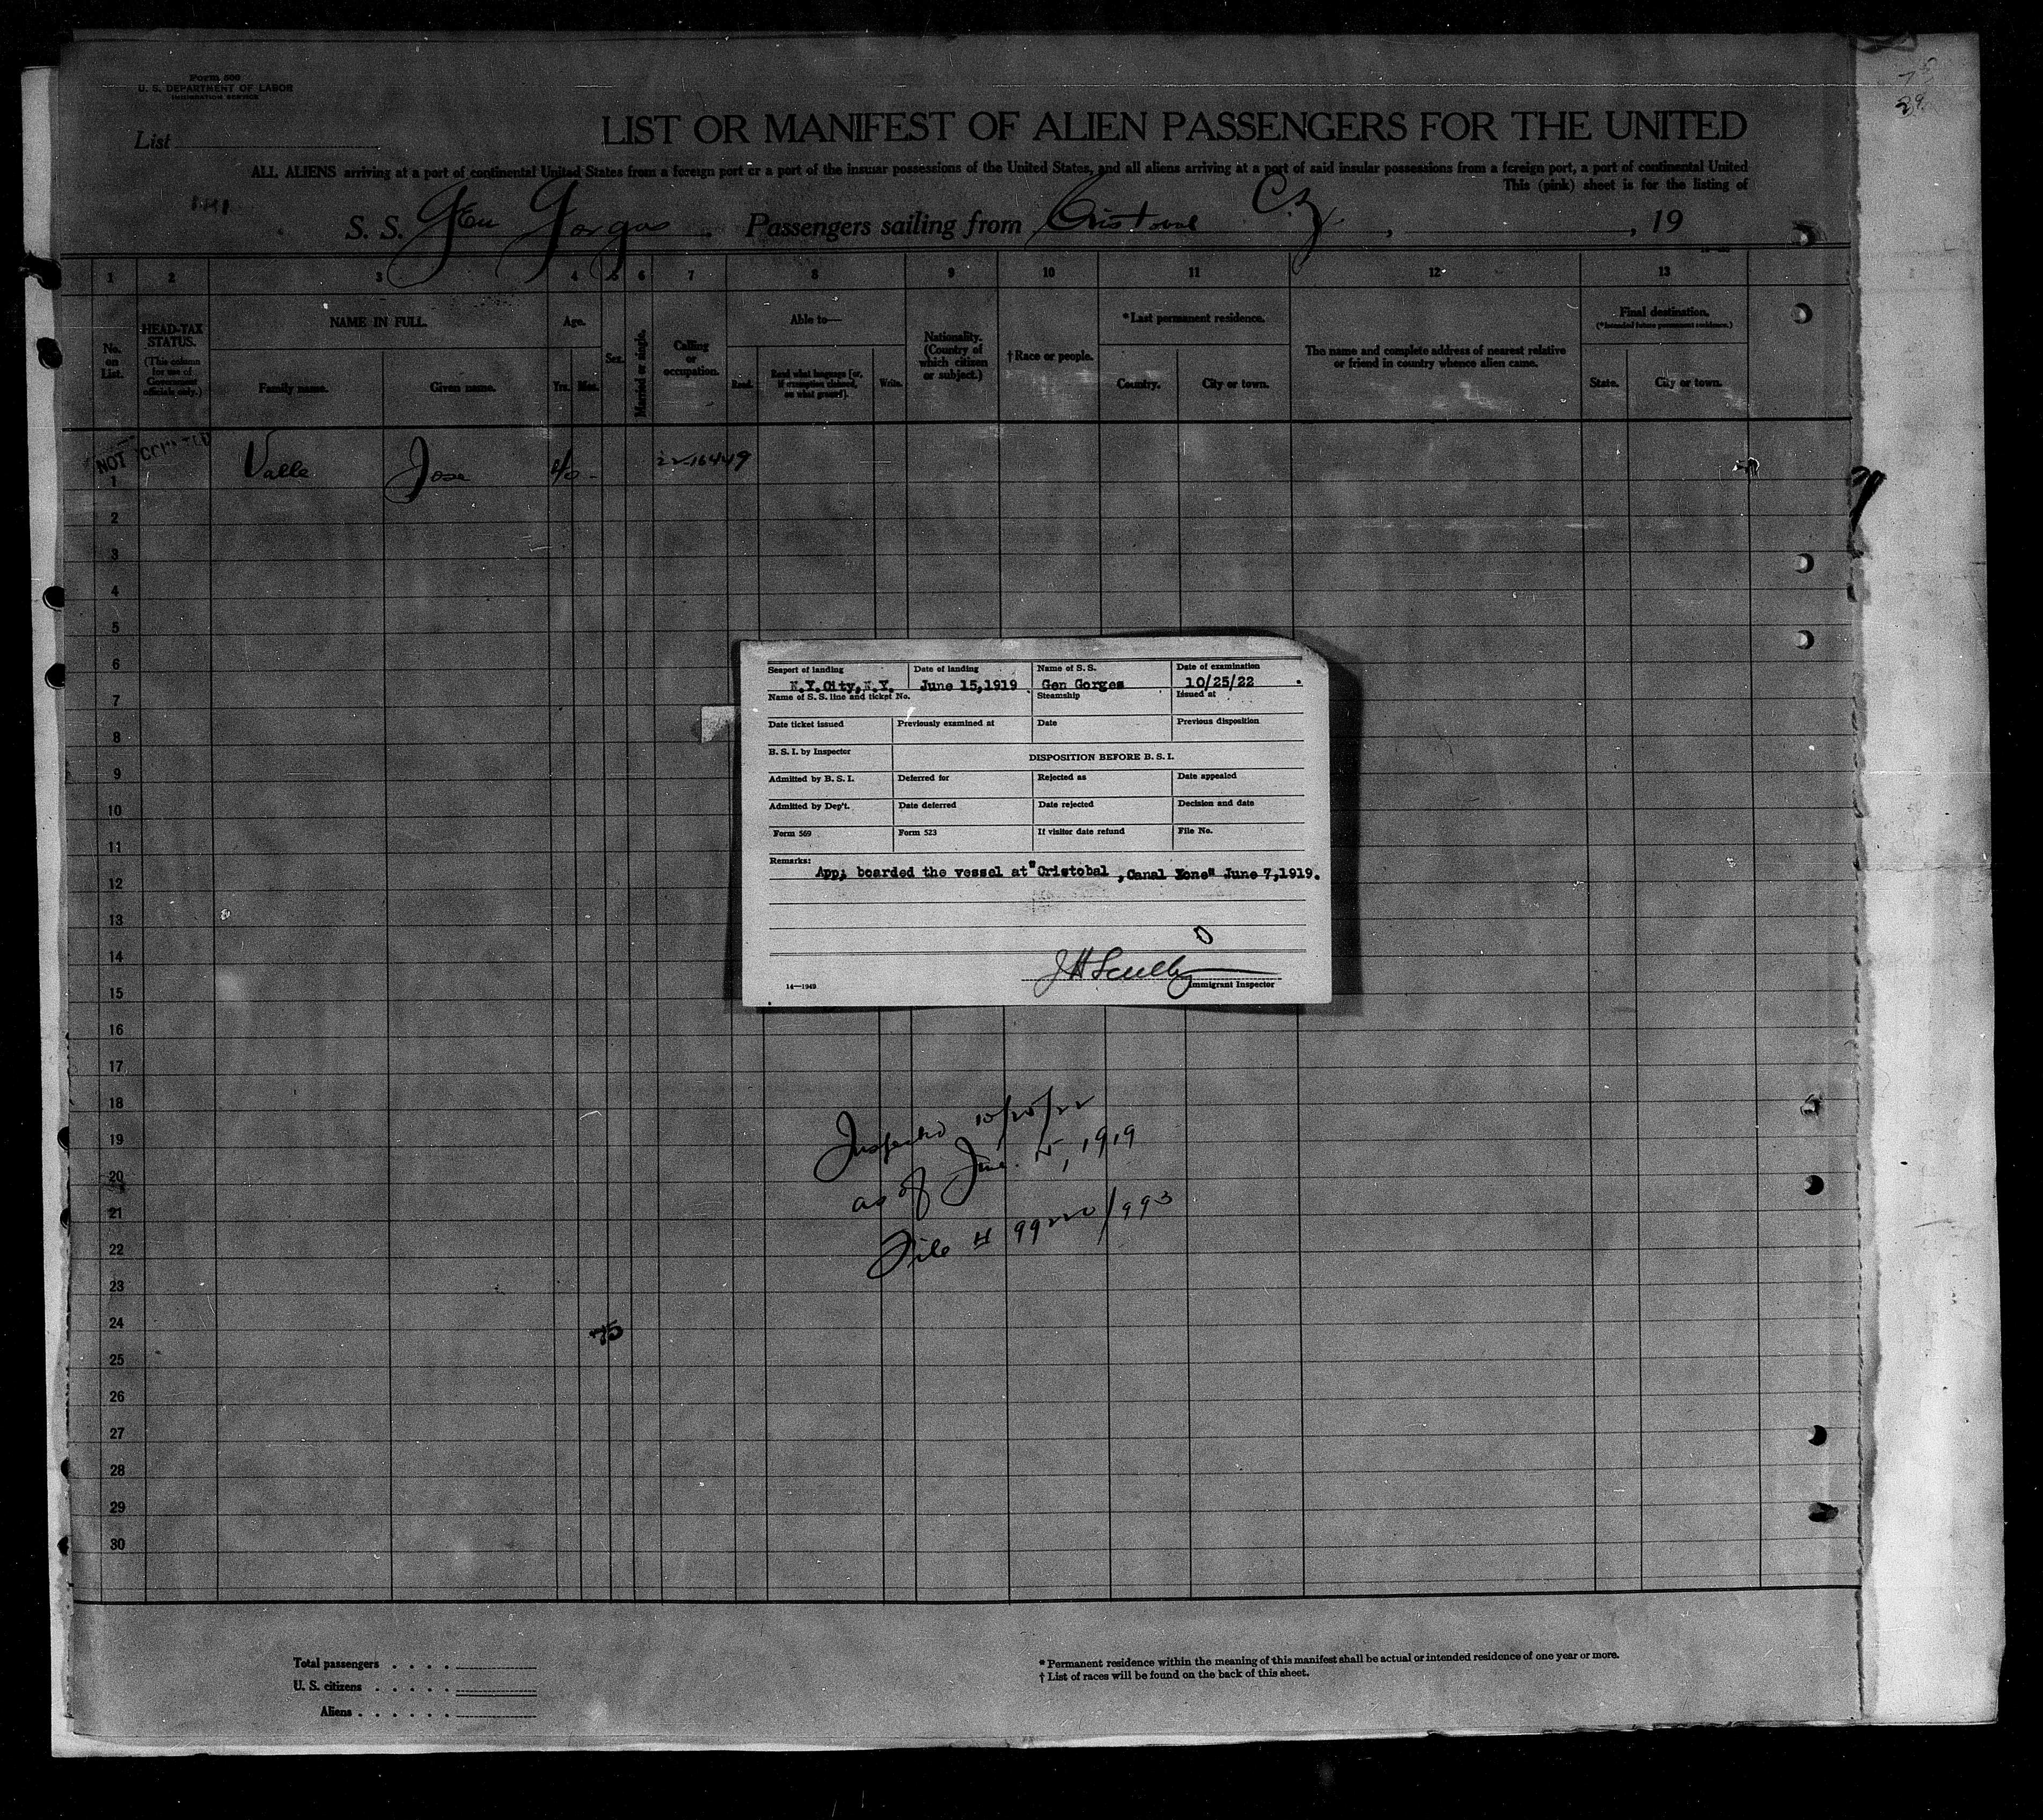 Form 500
U. S. DEPARTMENT OF LABOR
IMMIGRATION SERVICE
75
29
List
LIST OR MANIFEST OF ALIEN PASSENGERS FOR THE UNITED
ALL ALIENS arriving at a port of continental United States from a foreign port or a port of the insular possessions of the United States, and all aliens arriving at a port of said insular possessions from a foreign port, a port of continental United
This (pink) sheet is for the listing of
S. S. Gen Gorgas Passengers sailing from Cristobal C.Z. , , 19
1 2 3 4 5 6 7 8 9 10 11 12 13
No. on List.
HEAD-TAX STATUS.
(This column for use of Government officials only.)
NAME IN FULL.
Family name. Given name.
Age.
Yrs. Mos.
Sex.
Married or single.
Calling or occupation.
Able to—
Read. Read what language [or, if exemption claimed, on what ground]. Write.
Nationality. (Country of which citizen or subject.)
†Race or people.
*Last permanent residence.
Country. City or town.
The name and complete address of nearest relative or friend in country whence alien came.
Final destination.
(*Intended future permanent residence.)
State. City or town.
NOT
1 Valle Jose 40 -
2
3
4
5
6
7
8
9
10
11
12
13
14
15
16
17
18
19
20
21
22
23
24
25
26
27
28
29
30
Seaport of landing Date of landing Name of S. S. Date of examination
N.Y.City,N.Y. June 15,1919 Gen Gorges 10/25/22
Name of S. S. line and ticket No. Steamship Issued at
Date ticket issued Previously examined at Date Previous disposition
B. S. I. by Inspector DISPOSITION BEFORE B. S. I.
Admitted by B. S. I. Deferred for Rejected as Date appealed
Admitted by Dep't. Date deferred Date rejected Decision and date
Form 569 Form 523 If visitor date refund File No.
Remarks: App; boarded the vessel at "Cristobal ,Canal Zone" June 7,1919.
J H Scully
14—1949 Immigrant Inspector
Inspected 10/25/22
as of June 15, 1919
File # 99220/993
75
Total passengers
U. S. citizens
Aliens
* Permanent residence within the meaning of this manifest shall be actual or intended residence of one year or more.
† List of races will be found on the back of this sheet.